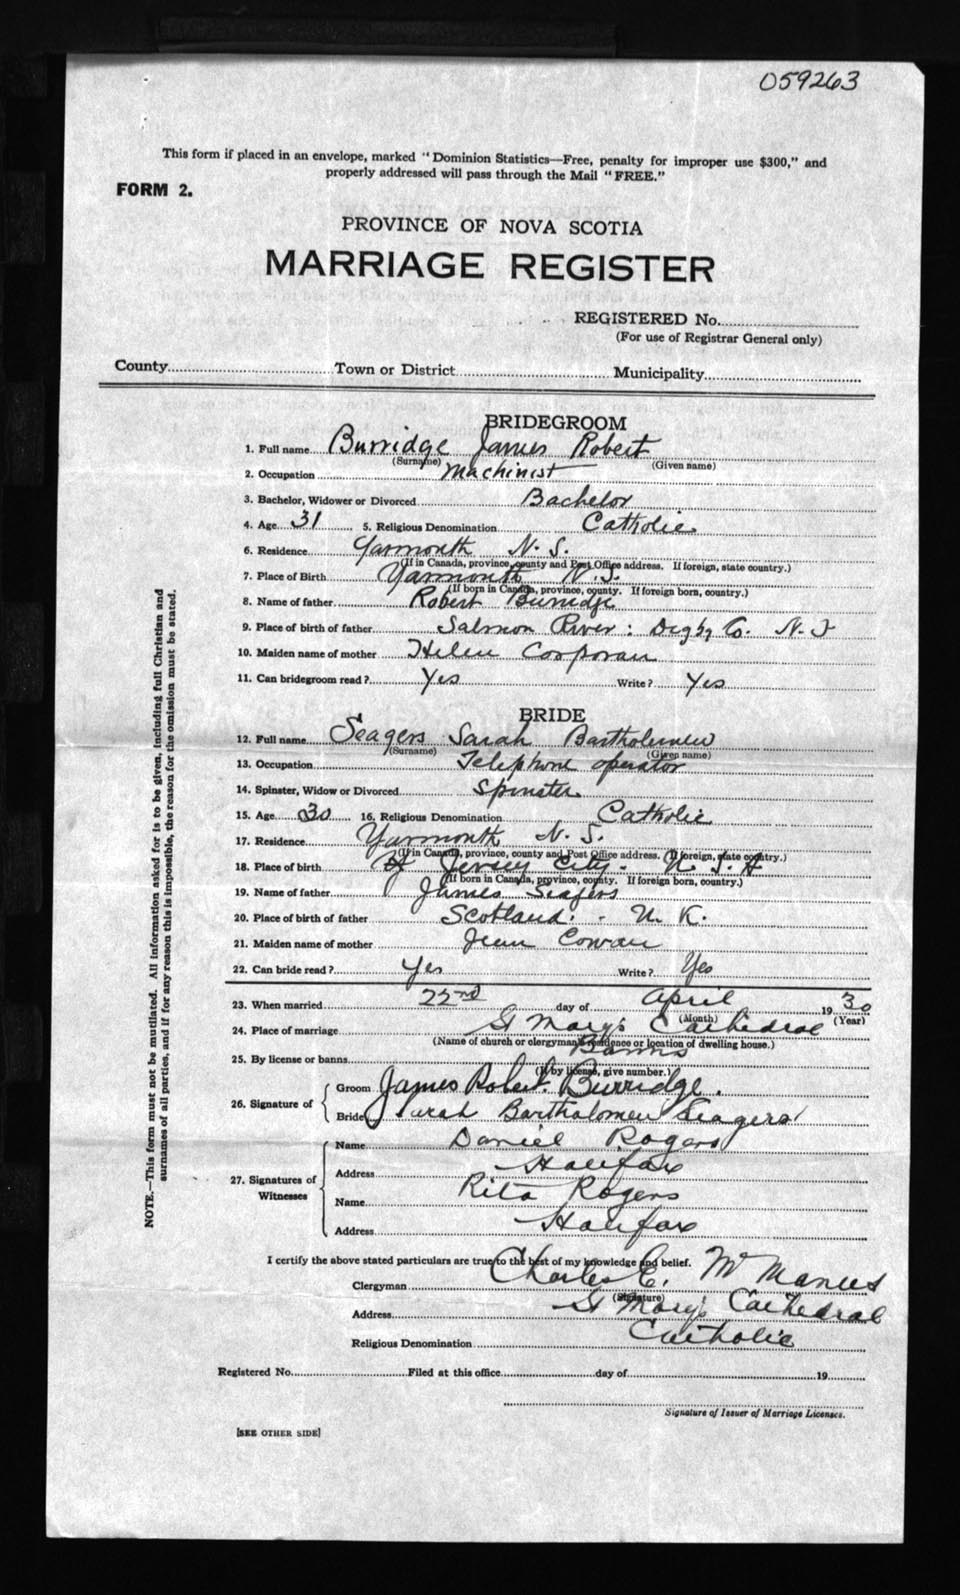 059263
This form if placed in an envelope, marked "Dominion Statistics—Free, penalty for improper use $300," and
properly addressed will pass through the Mail "FREE."
FORM 2.
PROVINCE OF NOVA SCOTIA
MARRIAGE REGISTER
REGISTERED No.
(For use of Registrar General only)
County Town or District Municipality
BRIDEGROOM
1. Full name Burridge James Robert
(Surname) (Given name)
2. Occupation Machinist
3. Bachelor, Widower or Divorced Bachelor
4. Age 31 5. Religious Denomination Catholic
6. Residence Yarmouth N. S.
(If in Canada, province, county and Post Office address. If foreign, state country.)
7. Place of Birth Yarmouth N.S.
(If born in Canada, province, county. If foreign born, country.)
8. Name of father Robert Burridge
9. Place of birth of father Salmon River: Digby Co. N. S
10. Maiden name of mother Helen Corporan
11. Can bridegroom read? Yes Write? Yes
BRIDE
12. Full name Seagers Sarah Bartholemew
(Surname) (Given name)
13. Occupation Telephone operator
14. Spinster, Widow or Divorced Spinster
15. Age 30 16. Religious Denomination Catholic
17. Residence Yarmouth N. S.
(If in Canada, province, county and Post Office address. If foreign, state country.)
18. Place of birth Jersey City U. S. A
(If born in Canada, province, county. If foreign born, country.)
19. Name of father James Seagers
20. Place of birth of father Scotland. - U. K.
21. Maiden name of mother Jean Cowan
22. Can bride read? Yes Write? Yes
23. When married 22nd day of April 1930
(Month) (Year)
24. Place of marriage St Mary's Cathedral
(Name of church or clergyman's residence or location of dwelling house.)
25. By license or banns Banns
(If by license, give number.)
26. Signature of { Groom James Robert Burridge.
Bride Sarah Bartholomew Seagers
27. Signatures of Witnesses { Name Daniel Rogers
Address Halifax
Name Rita Rogers
Address Halifax
I certify the above stated particulars are true to the best of my knowledge and belief.
Clergyman Charles E. McManus
(Signature)
Address St Mary's Cathedral
Religious Denomination Catholic
Registered No. Filed at this office day of 19
Signature of Issuer of Marriage Licenses.
[SEE OTHER SIDE]
NOTE.—This form must not be mutilated. All information asked for is to be given, including full Christian and
surnames of all parties, and if for any reason this is impossible, the reason for the omission must be stated.